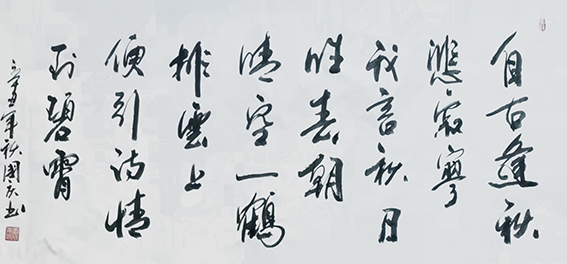 自古逢秋
悲寂寥
我言秋日
胜春朝
晴空一鶴
排雲上
便引诗情
到碧霄
年秋國庆书